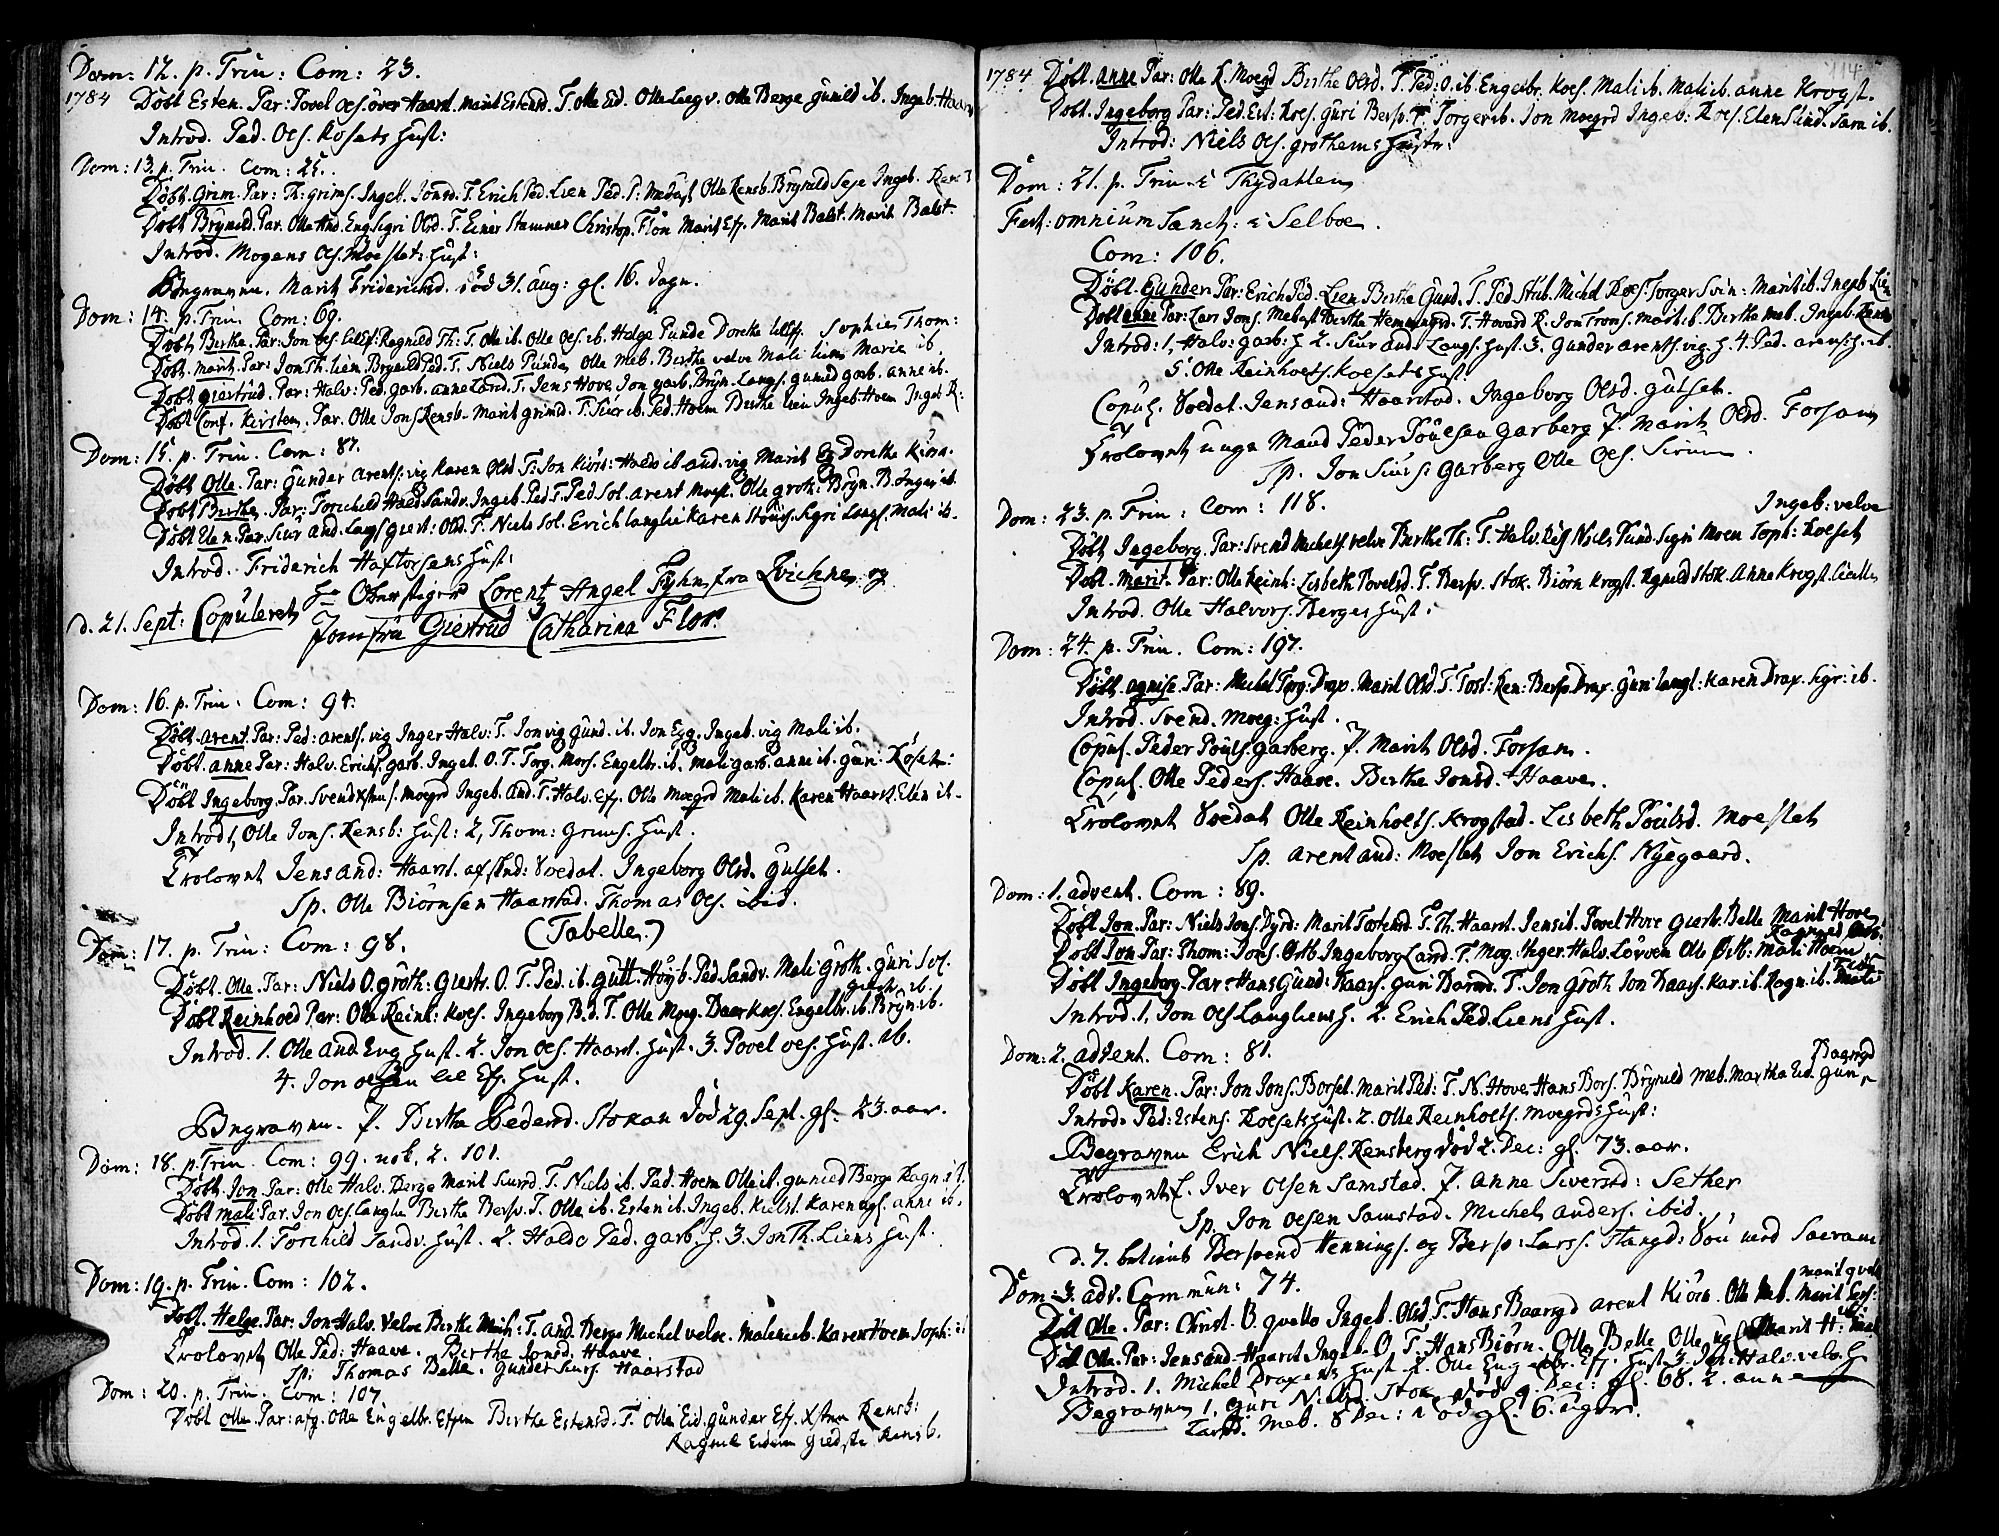 Dom: 12. p. Trin: Com: 23.
1784 Döbt Esten. Par: Povel Oes. över Haarst. marit Estensd. T. Olle Eid. Olle Leegv. Olle Berge gunild ib. Ingeb. Haars
Introd. Ped. Oes. Kosets Hust:
Dom: 13. p. Trin. Com: 25.
Döbt Grim. Par: Th. grims. Ingeb. Jonsd. T. Erich Ped. Lien Ped. P: Olle Rensb. Brynild Ingeb. Rens
Döbt Brynild. Par. Olle And. Eng. Sigri Olsd. T. Einer Stamnes Christop. Flön Marit Eff. Marit Balst. Marit Balst.
Introd. Mogens Oes. Moeslets Hust:
Begraven. Marit Friderichsd. död 31. aug: gl. 16. dage.
Dom: 14. p. Trin. Com: 69.
Döbt Birthe. Par: Jon Oes. Ragnild Th: T. Olle ib. Olle Oes. ib. Helge Punde Dorethe Sophie Thom:
Döbt. marit. Par: Jon Th. Lien. Brynild Ped. T. Niels Punde, Olle Meb. Birthe velve Mali Lien Marie ib.
Döbt giertrud. Par: Halv: Ped. garb. anne Larsd. T. Jens Hove, Jon garb. Bryn. Langs. gunild garb. anne ib.
Döbt Conf. Kirsten. Par. Olle Jons. Rensb. Marit grimsd. T. Siur ib. Ped. Hoem Birthe Lien Ingeb. Hoem Ingeb. R:
Dom: 15. p. Trin. Com: 87.
Döbt Olle. Par: Gunder Arents. vig Karen Olsd. T: Jon Kiörs: Haldo ib. and. vig Marit Eg Dorethe Kiörs.
Döbt Birthe. Par: Torchild Hald. Sandv. Ingeb. Ped. T. Ped Sol. arent Moest. Olle groth: Bryn. B. Inger ib.
Döbt Elen. Par. Siur And. Langs giert: Olsd. T. Niels Sol. Erich Langlie Karen Sigri Langs. Mali ib.
Introd. Friderich Haftorsens Hust:
d. 21. Sept: Copuleret Hr Oberstiger Lorent Angel Fyhn fra Qvickne og
Jomfru Giertrud Catharina Flor.
Dom: 16. p. Trin. Com: 94.
Döbt. arent. Par: Ped: arents. vig Inger Halv: T. Jon vig Gund. ib. Jon Egg. Ingeb. vig Mali ib.
Döbt. anne Par: Halv. Erichs. garb. Ingeb. O. T. Torg. Mors. Engelbr. ib. Mali garb. anne ib. guri: Köset:
Döbt Ingeborg. Par. Svend Moegrd Ingeb. And. T. Halv. Eff. Olle Moegrd Mali ib. Karen Haarst. Elen ib.
Introd 1, Olle Jons. Rensb: Hust: 2, Thom: Grims. Hust.
Trolovet Jens And: Haarst. Soldat. Ingeborg Olsd. Gulset.
Sp. Olle Biörnsen Haarstad. Thomas Oes. ibid.
Dom: 17. p. Trin: Com: 98. (Tabelle.)
Döbt. Olle. Par: Niels O. gröth: Giertr. O. T. Ped. ib. gutt. Höyb. Ped. Sandv. Mali gröth. guri Sol.
Döbt Reinhold Par: Olle Reinh: Koes. Ingeborg B. d. T. Olle Moeg. Baar Koes. Engelbr. ib. Bryn. ib.
Introd. 1. Olle And. Eng Hust. 2. Jon Oes. Haarst. Hust. 3. Povel Oes. Hust. ib.
4. Jon Olsen Lil Eff. Hust.
Begraven. P. Birthe Pedersd. Stokan död 29. Sept. gl. 23. aar.
Dom: 18. p. Trin. Com: 99. nok. 2. 101.
Döbt. Jon. Par: Olle Halv. Berge Marit Siursd. T. Niels ib. Ped. Hoem Olle ib. gunild Berge Ragn ib.
Döbt Mali Par. Jon Oes. Langlie Birthe Bersv. T. Olle ib. Esten ib. Ingeb. Kielst. Karen anne ib.
Introd. 1. Torchild Sandv. Hust. 2. Haldo Ped. garb. H. 3. Jon Th. Liens Hust.
Dom: 19. p. Trin. Com: 102.
Döbt. Helge. Par: Jon Halv. Velve Birthe Mich: T. And. Berge Michel velve. Mali Meb. Karen Hoem Soph:
Trolovet Olle Ped: Haave. Birthe Jonsd. Haave
Sp: Thomas Balle. Gunder Siurs. Haarstad
Dom: 20. p. Trin. Com: 107
Döbt Olle. Par: afg. Olle Engelbr. Effen Birthe Estensd. T. Olle Eid. gunder Eff. Rensb:
Ragnil Eidem Rensb.
1784 Döbt. anne Par: Olle R. Moegd Birthe Olsd. T. Ped: O. ib. Engelbr. Koes. Mali ib. Mali ib. anne Krogst.
114
Döbt. Ingeborg Par: Ped. Est: Koes. Guri Bersv. T. Torger ib. Jon Moegrd Ingeb: Koes. Elen Slind. Sara ib.
Introd: Niels Oes. grothems Hustr:
Dom: 21. p. Trin. i Thydahlen
Fest: omnium Sanct: i Selboe.
Com: 106.
Döbt. Gunder Par: Erich Ped. Lien Birthe Gund. T. Ped Stub. Michel Koes. Torger Svin: Marit ib. Ingeb Lien
Döbt anne Par: Lars Jons. Birthe Hemmingsd. T. Hovard R. Jon Trons. Marit ib. Birthe Meb. Ingeb. Rensb
Introd: 1, Halv: Garb: H 2. Siur And: Langs. Hust. 3. Gunder Arents. vig. H. 4. Ped. arens: H. ib.
5. Olle Reinholts. Koesets Hust:
Copul. Soldat. Jens And: Haarstad. Ingeborg Olsd. Gulset.
Trolovet unge Mand Peder Poulsen Garberg P. Marit Olsd. Forsam
Sp. Jon Siurs: Garberg Olle Oes. Sirum.
Dom: 23. p. Trin: Com: 118. Ingeb: velve
Döbt Ingeborg. Par: Svend Michels. velve Birthe Th: T. Halv. Niels Pund. Sigri Moen Soph: Koeset
Döbt. Marit. Par: Olle Reinh: Lisbeth Povelsd. T. Bersv. Stok. Biörn Krogst. Agnild Stok. Anne Krogst.
Introd. Olle Halvors. Berges Hust:
Dom: 24. p. Trin. Com: 197.
Döbt. agnise. Par: Michel Torg. Drax. Marit Olsd. T. Tost: Ren: Bersv. Drax. Guri Langl: Karen Drax. Sigr: ib.
Introd. Svend. Moeg: Hust.
Copul. Peder Pouls. garberg. P. Marit Olsd. Forsam.
Copul. Olle Peders. Haave. Birthe Jonsd. Haave.
Trolovet Soldat Olle Reinholts. Krogstad. Lisbeth Poulsd. Moeslet
Sp. Arent And: Moeslet Jon Erichs. Nygaard.
Dom: 1. advent. Com: 89.
Döbt Jon. Par: Niels Jons. Dyrd: Marit Tostensd. T. Th. Haarst. Jens ib. Povel Hove Giertr. Balle Marit Hove
Döbt Jon Par: Thom: Jons. Ostb. Ingeborg Larsd. T. Mog. Inger Halv. Löven Olle Östb: Mali Hoem Ragnild Östb.
Döbt Ingeborg. Par: Hans Gund: Kaars. Guri T. Jon Gröth Jon Kaars. Kar. ib. Ragn. ib. Mali
Introd. 1. Jon Oes Langliens H. 2. Erich Ped. Liens Hust.
Dom: 2. advent. Com: 81. Baargd
Döbt Karen. Par: Jon Jons. Borset. Marit Ped: T. N. Hove, Hans Bors. Brynild Meb. Martha Eid. Gun
Introd. Ped: Estens. Koesets Hust. 2. Olle Reinholts. Moegrds Hust:
Begraven Erich Niels. Rensberg död 2. Dec: gl. 73. aar.
Trolovet E. Iver Olsen Samstad. P. Anne Siversd: Sether
Sp. Jon Olsen Samstad. Michel anders. ibid.
d. 7. Bersvend Hennings. og Bersv: Larss. Stangd: med Sacram
Dom: 3. adv. Commun: 74. marit qvel
Döbt Olle. Par: Christ. O. qvello Ingeb. Olsd. T. Hans Baargd arent Kiörn. Olle Meb. Marit
Döbt Olle. Par: Jens And. Haarst Ingeb. O. T. Hans Biörn. Olle Balle Olle Marit H:
Introd. 1. Michel Draxens Hust. 2. Olle Engelbr. Eff. Hust. 3. Jon Halv. velv. H
Begraven 1, Guri Nielsd. Stok död 9. Dec: gl. 68. 2. anne
Larsd. Meb. 8 Dec: död gl. 6. uger.